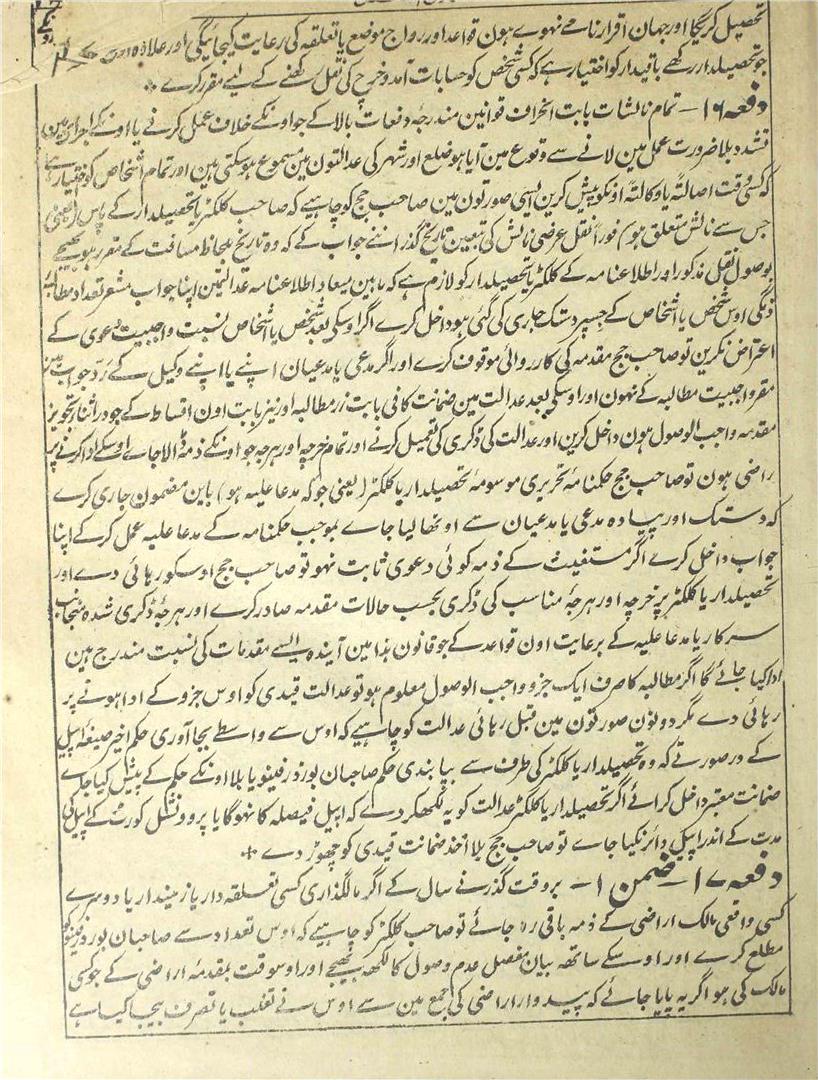 تحصیل کریگا اور جہان اقرارنامے نہووے ہون قواعد اور رواج موضع یا تعلقہ کی رعایت کیجائیگی اور علاوہ
جو تحصیلدار رکھے باقیدار کو اختیار ہے کہ کسی شخص کو حسابات آمد و خرچ کی نقل رکھنے کے لیے مقرر کرے *
دفعہ ۱۶ — تمام نالشات بابت انحراف قوانین مندرجۂ دفعات بالا کے جو اونکے خلاف عمل کرنے یا اونکے اجرا مین
تشدد بلا ضرورت عمل مین لانے سے وقوع مین آیا ہو ضلع اور شہر کی عدالتون مین مسموع ہوسکتی ہین اور تمام اشخاص کو اختیار ہے
کہ کسی وقت اصالتًہ یا وکالتًہ اونکو پیش کرین ایسی صورتون مین صاحب جج کو چاہیے کہ صاحب کلکٹر یا تحصیلدار کے پاس (یعنی
جس سے نالش متعلق ہو) فورًا نقل عرضی نالش کی بتعین تاریخ گذراننے جواب کے کہ وہ تاریخ بلحاظ مسافت کے مقرر ہو بھیجے
بوصول نقل مذکور اور اطلاعنامہ کے کلکٹر یا تحصیلدار کو لازم ہے کہ مابین میعاد اطلاعنامہ عدالت مین اپنا جواب مشعر تعداد مطالبہ
ذمگی اوس شخص یا اشخاص کے جسپر دستک جاری کی گئی ہو داخل کرے اگر اوسکی بعد شخص یا اشخاص نسبت واجبیت دعوی کے
اعتراض نکرین تو صاحب جج مقدمہ کی کارروائی موقوف کرے اور اگر مدعی یا مدعیان اپنے یا اپنے وکیل کے رد جواب مین
مقر واجبیت مطالبہ کے نہون اور اوسکی بعد عدالت مین ضمانت کافی بابت زر مطالبہ اور نیز بابت اون اقساط کے جو در اثناء تجویز
مقدمہ واجب الوصول ہون داخل کرین اور عدالت کی ڈکری کی تعمیل کرنے اور تمام خرچہ اور ہرجہ جو اونکے ذمہ ڈالا جاے اوسکے ادا کرنے پر
راضی ہون تو صاحب جج حکمنامۂ تحریری موسومۂ تحصیلدار یا کلکٹر (یعنی جو کہ مدعا علیہ ہو) باین مضمون جاری کرے
کہ دستک اور پیادہ مدعی یا مدعیان سے اوٹھا لیا جاے بموجب حکمنامہ کے مدعا علیہ عمل کرکے اپنا
جواب داخل کرے اگر مستغیث کے ذمہ کوئی دعوی ثابت نہو تو صاحب جج اوسکو رہائی دے اور
تحصیلدار یا کلکٹر پر خرچہ اور ہرجۂ مناسب کی ڈکری بحسب حالات مقدمہ صادر کرے اور ہرجۂ ڈکری شدہ منجانب
سرکار یا مدعا علیہ کے برعایت اون قواعد کے جو قانون ہذا مین آیندہ ایسے مقدمات کی نسبت مندرج ہین
ادا کیا جائے گا اگر مطالبہ کا صرف ایک جزو واجب الوصول معلوم ہو تو عدالت قیدی کو اوس جزو کے ادا ہونے پر
رہائی دے مگر دونون صورتون مین قبل رہائی عدالت کو چاہیے کہ اوس سے واسطے بجا آوری حکم اخیر صیغۂ اپیل
کے در صورتے کہ وہ تحصیلدار یا کلکٹر کی طرف سے بپابندی حکم صاحبان بورڈ رفینیو یا بلا اونکے حکم کے پیش کیا جاے
ضمانت معتبر داخل کرائے اگر تحصیلدار یا کلکٹر عدالت کو یہ لکھکر دے کہ اپیل فیصلہ کا نہوگا یا پروونشل کورٹ کے اپیل کی
مدت کے اندر اپیل دائر نکیا جاے تو صاحب جج بلا اخذ ضمانت قیدی کو چھوڑ دے *
دفعہ ۱۷ — ضمن ۱ — بروقت گذرنے سال کے اگر مالگذاری کسی تعلقہ دار یا زمیندار یا دوسرے
کسی واقعی مالک اراضی کے ذمہ باقی رہ جائے تو صاحب کلکٹر کو چاہیے کہ اوس تعداد سے صاحبان بورڈ رفینیو کو
مطلع کرے اور اوسکے ساتھ بیان مفصل عدم وصول کا لکھہ بھیجے اور اوسوقت بمقدمہ اراضی کے جو کسی
مالک کی ہو اگر یہ پایا جائے کہ پیداوار اراضی کی جمع مین سے اوس نے تغلب یا تصرف بیجا کیا ہے